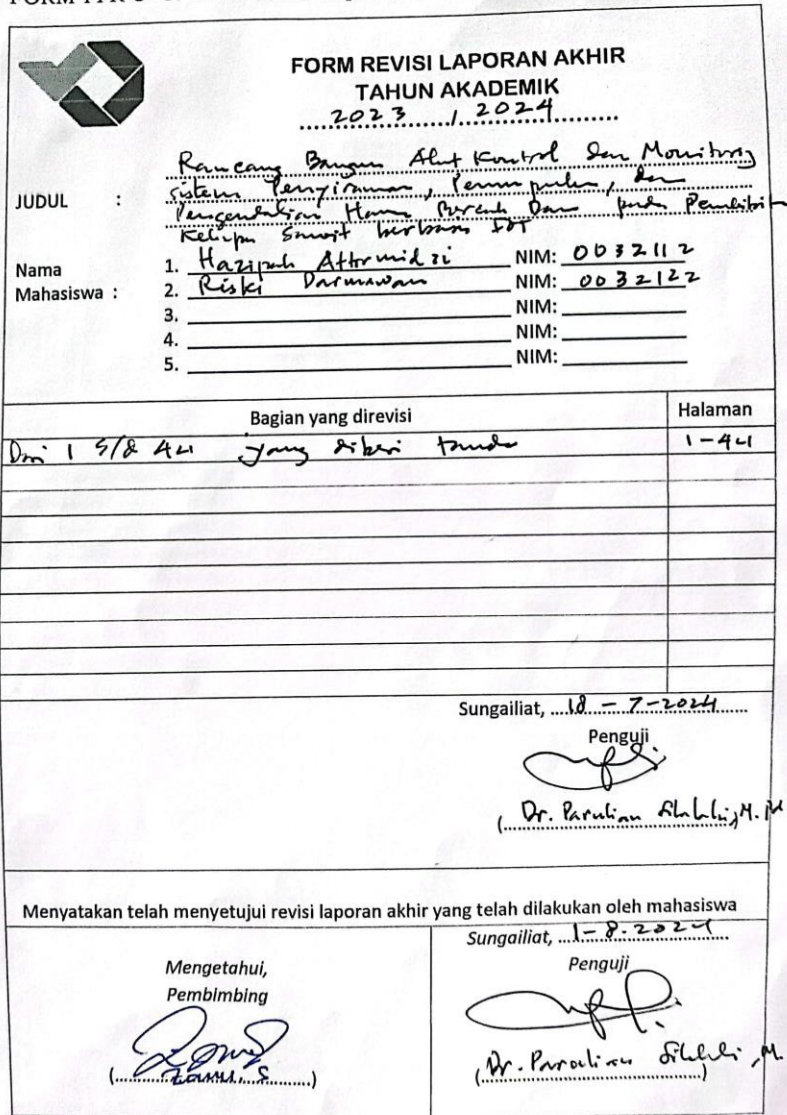 FORM REVISI LAPORAN AKHIR
TAHUN AKADEMIK
2023 / 2024
JUDUL : Rancang Bangun Alat Kontrol dan Monitoring
sistem Penyiraman, Pemupukan, dan
Pengendalian Hama Bercak Daun pada Pembibit
Kelapa Sawit berbasis IOT
Nama
Mahasiswa :
1. Hazipah Attarmidzi NIM: 0032112
2. Riski Darmawan NIM: 0032122
3. NIM:
4. NIM:
5. NIM:
Bagian yang direvisi Halaman
Dari 1 s/d 44 yang diberi tanda 1-44
Sungailiat, 18-7-2024
Penguji
(Dr. Parulian Silalahi, M.Pd
Menyatakan telah menyetujui revisi laporan akhir yang telah dilakukan oleh mahasiswa
Sungailiat, 1-8-2024
Mengetahui,
Pembimbing
Penguji
(Zanu S)
(Dr. Parulian Silalahi, M.)